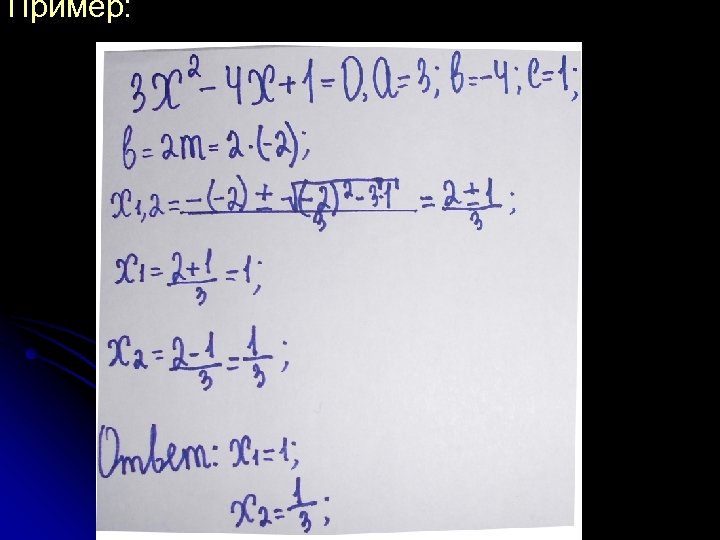 Пример:
3x² - 4x + 1 = 0, a = 3; b = -4; c = 1;
b = 2m = 2·(-2);
x₁,₂ = (-(-2) ± √((-2)² - 3·1))/3 = (2 ± 1)/3;
x₁ = (2+1)/3 = 1;
x₂ = (2-1)/3 = 1/3;
Ответ: x₁ = 1;
x₂ = 1/3;